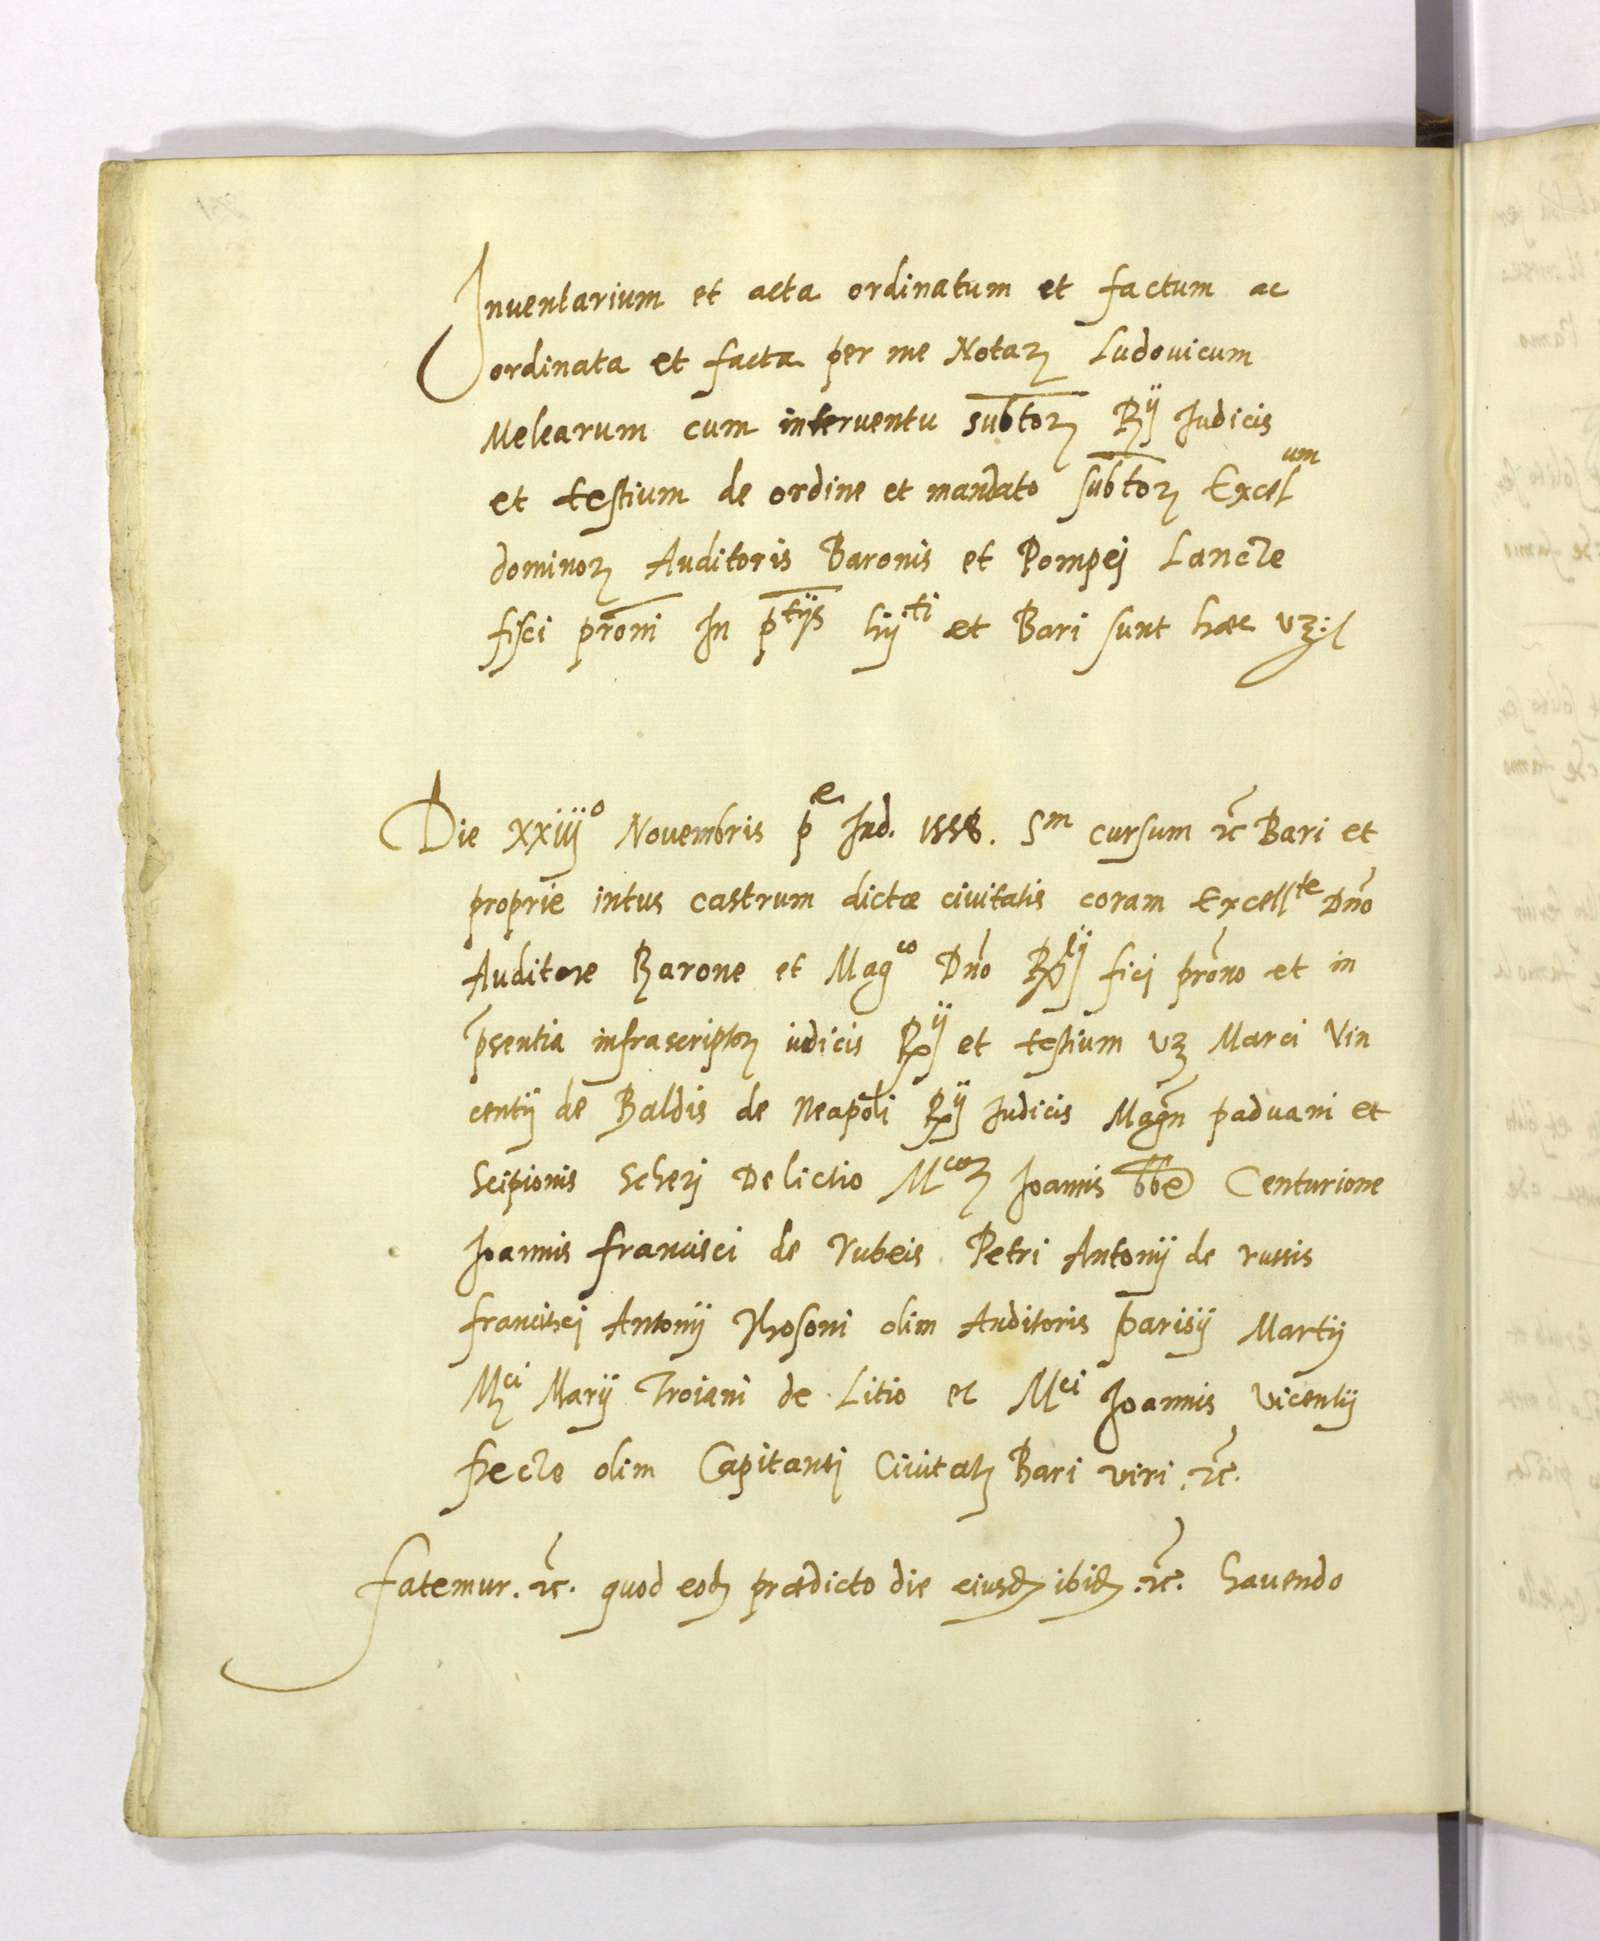 Inuentarium et acta ordinatum et factum ac
ordinata et facta per me Notarꝫ Ludouicum
Melearum cum interuentu subtorꝫ Rij Iudicis
et testium de ordine et mandato subtorꝫ Excelum
dominorꝫ Auditoris Baronis et Pompej Lancle
fisci proni In ptijs hijti et Bari sunt hæc vꝫ:
Die xxiiijo Nouembris pe Ind. 1558. Sm cursum ⁊c Bari et
proprie intus castrum dictæ ciuitatis coram Excellte Dno
Auditore Barone et Magco Dno fici prono et in
psentia infrascriptorꝫ iudicis Rij et testium vꝫ Marci Vin
centij de Baldis de Neapoli Rij Iudicis Magn paduani et
Scipionis Scherj Delictio Mcorꝫ Joannis Centurione
Joannis francisci de rubeis Petri Antonij de russis
francisci Antonij olim Auditoris parisij Martij
Mci Marij Troiani de Litio et Mci Joannis vicentij
frecle olim Capitanij Ciuitatꝫ Bari viri .⁊c.
fatemur .⁊c. quod eodꝫ prædicto die eiusdꝫ ibidꝫ .⁊c. hauendo